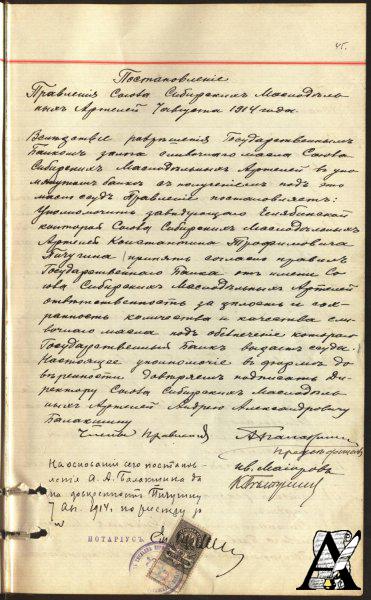 45.
Постановленіе
Правленія Союза Сибирскихъ Маслодѣль-
ныхъ Артелей 7 августа 1914 года.
Вслѣдствіе разрѣшенія Государственнымъ
Банкомъ залога сливочнаго масла Союза
Сибирскихъ Маслодѣльныхъ Артелей въ упо-
мянутомъ банкѣ съ полученіемъ подъ это
масло ссудъ Правленіе постановляетъ:
Уполномочить завѣдующаго Челябинской
конторой Союза Сибирскихъ Маслодѣльныхъ
Артелей Константина Трофимовича
Пичугина принять согласно правилъ
Государственнаго Банка отъ имени Со-
юза Сибирскихъ Маслодѣльныхъ Артелей
отвѣтственность за цѣлость и сох-
ранность количества и качества сли-
вочнаго масла подъ обезпеченіе котораго
Государственный Банкъ выдастъ ссуды.
Настоящее уполномочіе въ формѣ до-
вѣренности довѣряемъ подписать Ди-
ректору Союза Сибирскихъ Маслодѣль-
ныхъ Артелей Андрею Александровичу
Балакшину
Члены Правленія А Балакшин
Ив. Маіоровъ
На основаніи сего постанов-
ленія А. А. Балакшинымъ да-
на довѣренность Пичугину
7 Ав. 1914, по реестру №
НОТАРІУСЪ
А